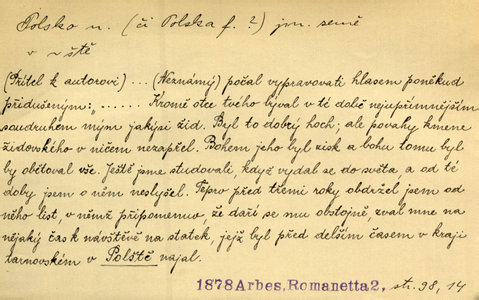 Polsko n. (či Polska f. ?) jm. země
v ~ště
(Přítel k autorovi) ... (Neznámý) počal vypravovati hlasem poněkud
předušeným: „ ...... Kromě otce tvého býval v té době nejupřímnějším
soudruhem mým jakýsi žid. Byl to dobrý hoch; ale povahy kmene
židovského v ničem nezapřel. Bohem jeho byl zisk a bohu tomu byl
by obětoval vše. Ještě jsme studovali, když vydal se do světa, a od té
doby jsem o něm neslyšel. Teprv před třemi roky obdržel jsem od
něho list, v němž připomenuv, že daří se mu obstojně, zval mne na
nějaký čas k návštěvě na statek, jejž byl před delším časem v kraji
tarnovském v Polště najal.
1878 Arbes, Romanetta 2, str. 98, 14